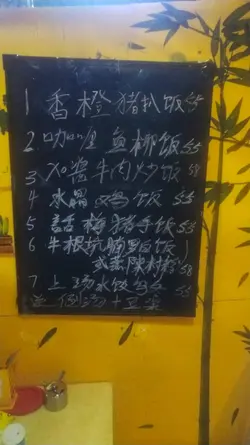 1 香橙猪扒饭 55
2 咖哩鱼柳饭 55
3 XO酱牛肉炒饭 58
4 水晶鸡饭 55
5 話梅猪手饭 53
6 牛根坑腩饭
或蒸陳村粉 58
7 上汤水饺
送例汤+豆浆